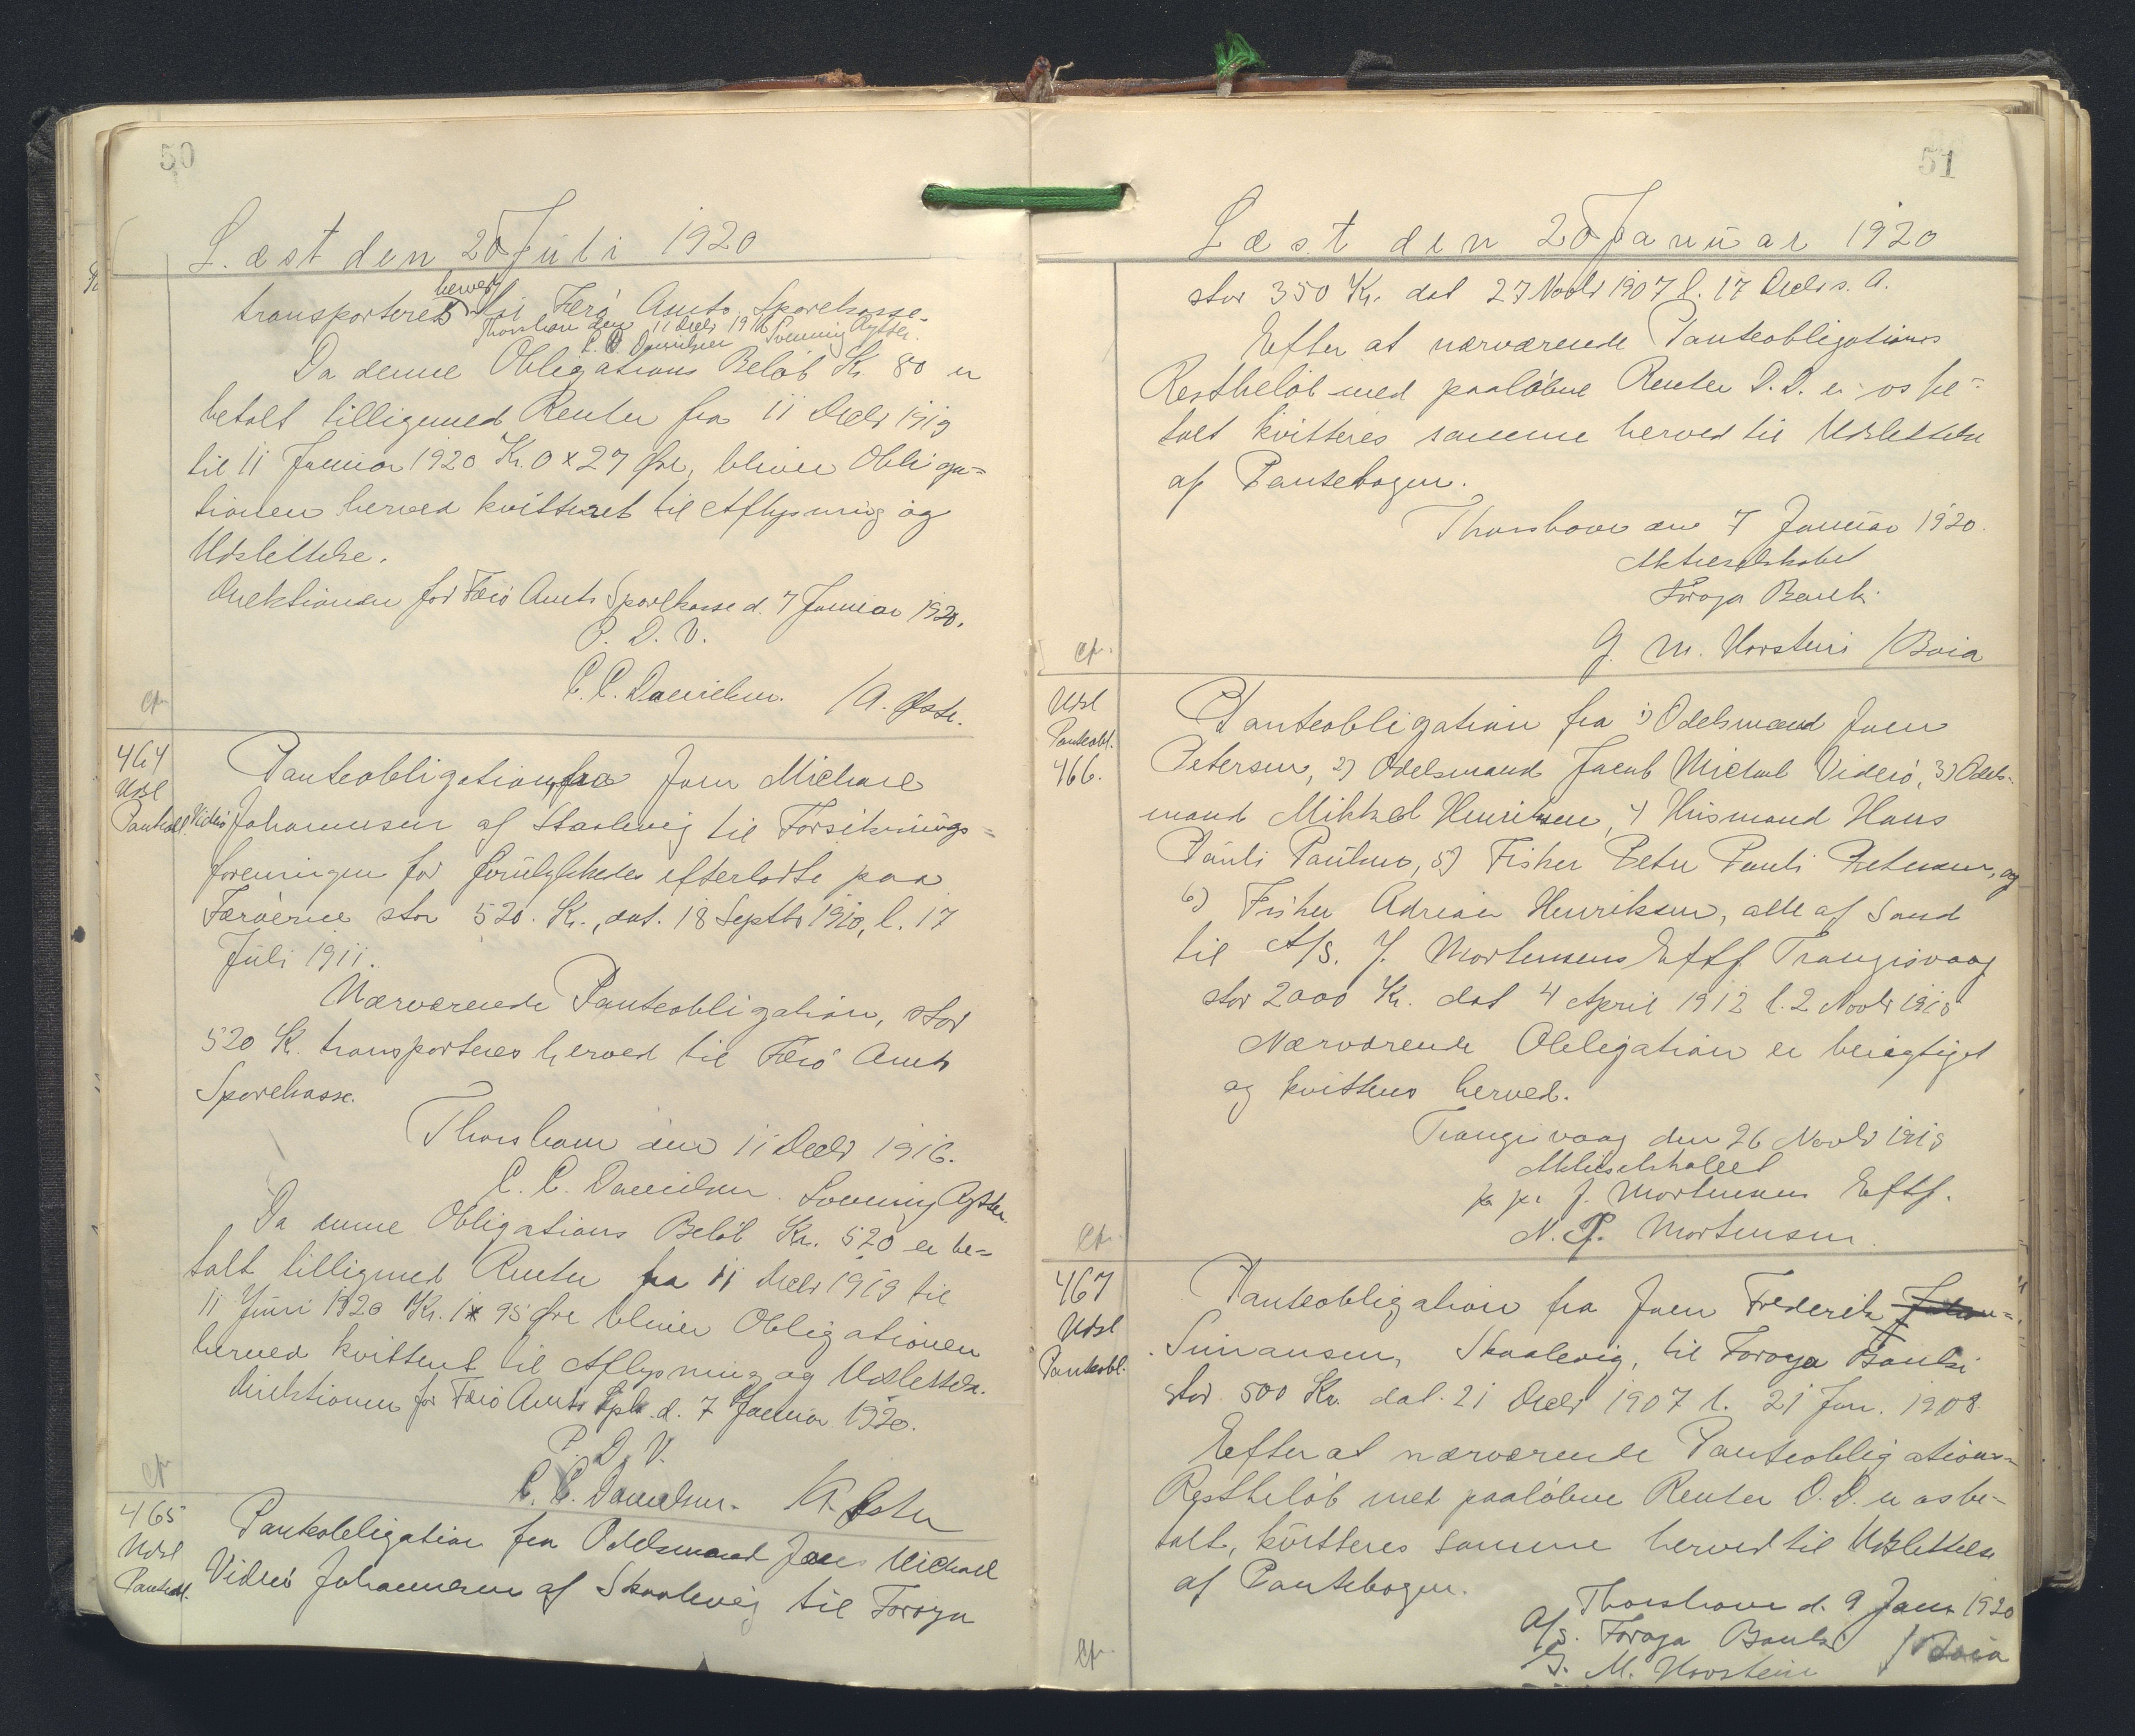 50
Læst den 20 Juli 1920
transporteres herved til Færø Amts Sparekasse.
Thorshavn den 11 Decbr 1916
C. C. Danielsen
Da denne Obligations Beløb Kr. 80 er
betalt tilligemed Renter fra 11 Decbr 1919
til 11 Januar 1920 Kr. 0 x 27 Øre, bliver Obliga=
tionen herved kvitteret til Aflysning og
Udslettelse.
Direktionen for Færø Amts Sparekasse d. 7 Januar 1920.
P. D. V.
C. C. Danielsen.
464
Udsl
Panteobl.
Panteobligation fra Joen Michael
Viderø Johannesen af Skaalevig til Forsikrings=
foreningen for forulykkedes efterladte paa
Færøerne stor 520. Kr., dat. 18 Septbr 1910, l. 17
Juli 1911.
Nærværende Panteobligation, stor
520 Kr. transporteres herved til Færø Amts
Sparekasse.
Thorshavn den 11 Decbr 1916.
C. C. Danielsen.
Da denne Obligations Beløb Kr. 520 er be=
talt tilligemed Renter fra 11 Decbr 1919 til
11 Juni 1920 Kr. 1 x 95 Øre bliver Obligationen
herved kvitteret til Aflysning og Udslettelse.
Direktionen for Færø Amts Spk. d. 7 Januar 1920.
P. D. V.
C. C. Danielsen.
465
Udsl
Panteobl.
Panteobligation fra Odelsmand Joen Michael
Viderø Johannesen af Skaalevig til Føroya
51
Læst den 20 Januar 1920
stor 350 Kr. dat 27 Novbr 1907 l. 17 Decbr s. A.
Efter at nærværende Panteobligations
Restbeløb med paaløbne Renter D. D. er os be=
talt kvitteres samme herved til Udslettelse
af Pantebogen.
Thorshavn den 7 Januar 1920.
Aktieselskabet
Føroya Banki
/Boia
Udsl
Panteobl.
466.
Panteobligation fra 1) Odelsmand Joen
Petersen, 2) Odelsmand Jacob Michael Viderø, 3) Odels=
mand Mikkel Henriksen, 4 Husmand Hans
Pauli Paulsen, 5) Fisker Peter Pauli Petersen, og
6) Fisker Adrian Henriksen, alle af Sand
til A/S. J. Mortensens Eftf. Trangisvaag
stor 2000 Kr. dat 4 April 1912 l. 2 Novbr 1918
Nærværende Obligation er berigtiget
og kvitteres herved.
Trangisvaag den 26 Novbr 1918
Aktieselskabet
pr pr J. Mortensens Eftf.
N. P. Mortensen.
467
Udsl
Panteobl.
Panteobligation fra Joen Frederik
Simansen, Skaalevig, til Føroya Banki
stor 500 Kr. dat. 21 Decbr 1907 l. 21 Jan. 1908
Efter at nærværende Panteobligations=
Restbeløb med paaløbne Renter D. D. er os be=
talt, kvitteres samme herved til Udslettelse
af Pantebogen.
Thorshavn d. 9 Janr 1920
A/S. Føroya Banki
/Boia